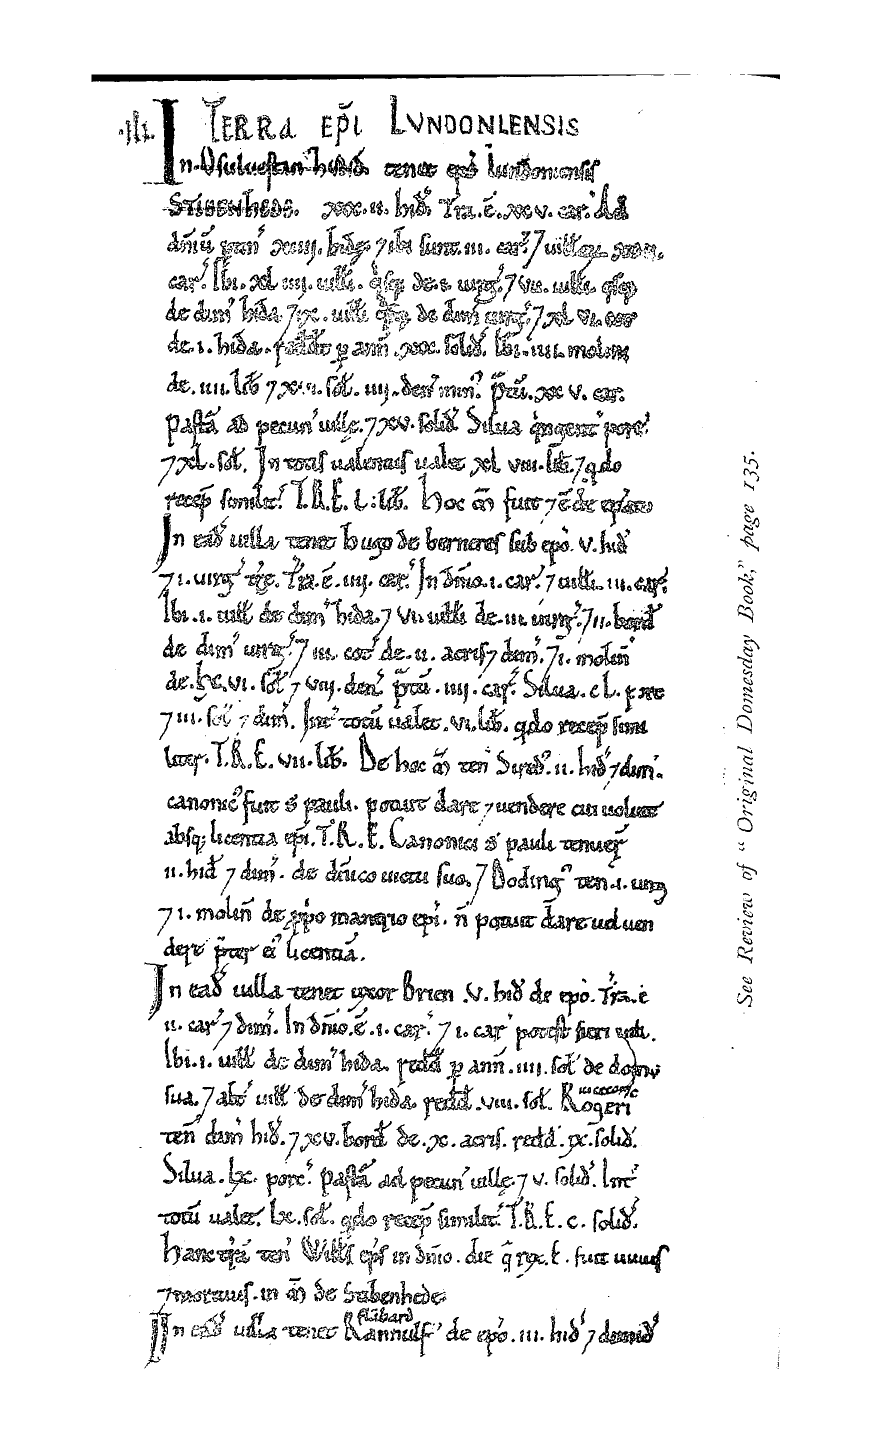 .III. TERRA EP̃I LVNDONIENSIS
In Osuluestan hund. tenet ep̃s Lundoniensis
STIBENHEDE. xxx.ii. hid̃. Tr̃a.ẽ.xxv. car̃. Ad
dñiũ ptin̄ xiiii. hidę ⁊ ibi sunt .iii. car̃. ⁊ uilłoꝝ xxii.
car̃. Ibi .xl iiii. uilłi. q̇sq̨ de .i. uirg̃. ⁊ vii. uilłi. q̇sq̨
de dim̃ hida ⁊ ix. uilłi q̇sq̨ de dim̃ uirg̃. ⁊ xl vi. cot̃
de .i. hida. redd̃t ꝑ ann̄ .xxx. solid̃. Ibi .iiii. molini
de .iiii. lib̃ ⁊ xvi. sol̃. iiii. den̄ min̄. p̃tũ .xx v. car̃.
Pasta ad pecun̄ uillę. ⁊ xv. solid̃ Silua q̇ngent̃ porc̃.
⁊ xl. sol̃. In totis ualentiis ualet xl viii. lib̃. ⁊ qdo
recep̃ similit̃. T.R.E. L. lib̃. Hoc m̃ fuit ⁊ ẽ de ep̃atu
In ead̃ uilla tenet hugo de berneres sub ep̃o .v. hid̃
⁊ i. uirg̃ tr̃ę. Tr̃a.ẽ.iiii. car̃. In dñio .i. car̃. ⁊ uilłi .iii. car̃.
Ibi .i. uilł de dim̃ hida. ⁊ vi. uilłi de .iii. uirg̃. ⁊ ii. bord̃
de dim̃ uirg̃. ⁊ iii. cot̃ de .ii. acris ⁊ dim̃. ⁊ i. molin̄
de .lx.vi. sol̃ ⁊ viii. den̄. p̃tũ .iiii. car̃. Silua .c l. porc̃
⁊ iii. sol̃ ⁊ dim̃. Int̃ totũ ualet .vi. lib̃. qdo recep̃ simi
liter. T.R.E. vii. lib̃. De hoc m̃ ten̄ Sired̃ .ii. hid̃ ⁊ dim̃.
canonic̃ fuit s̃ pauli. potuit dare ⁊ uendere cui uoluit
absq; licentia ep̃i. T.R.E. Canonici s̃ pauli tenuer̃
ii. hid̃ ⁊ dim̃. de dñico uictu suo. ⁊ Doding̃ ten̄ .i. uirg̃
⁊ i. molin̄ de ꝓpo manerio ep̃i. n̄ potuit dare uel uen
dere p̃ter ei̓ licentiã.
In ead̃ uilla tenet uxor Brien .v. hid̃ de ep̃o. Tr̃a.ẽ
ii. car̃ ⁊ dim̃. In dñio.ẽ.i. car̃. ⁊ i. car̃ potest fieri uilł.
Ibi.i. uilł de dim̃ hida. redd̃ ꝑ ann̄ .iiii. sol̃ de domo
sua. ⁊ alt̃ uilł de dim̃ hida redd̃ .viii. sol̃. Rogeri
ten̄ dim̃ hid̃. ⁊ xv. bord̃ de .x. acris. redd̃ .ix. solid̃.
Silua .lx. porc̃. Pastã ad pecun̄ uillę. ⁊ v. solid̃. Int̃
totũ ualet .lx. sol̃. qdo recep̃ similit̃. T.R.E. c. solid̃.
Hanc tr̃ã ten̄ Wills̃ ep̃s in dñio. die q̃ rex. E. fuit uiuus
⁊ mortuus. in m̃ de Stibenhede
In ead̃ uilla tenet Rannulf̃ flãbard de ep̃o .iii. hid̃ ⁊ dimid̃
See Review of “Original Domesday Book,” page 135.